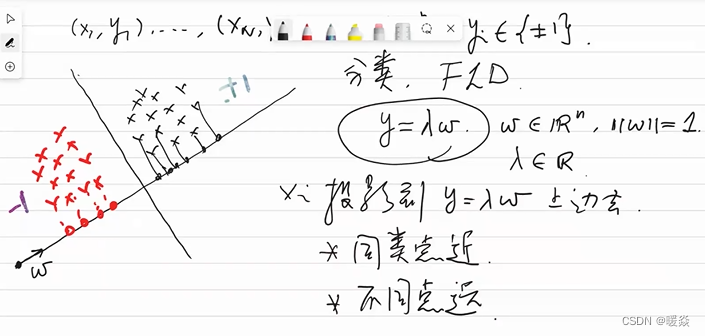 (x₁, y₁) ....., (xₙ,
yᵢ∈{±1}.
分类. FLD.
+1
y=λw. w∈ℝⁿ, ||w||=1.
λ∈ℝ
-1
xᵢ 投影到 y=λw 上边去.
w
* 同类点近.
* 不同点远.
CSDN @暖焱